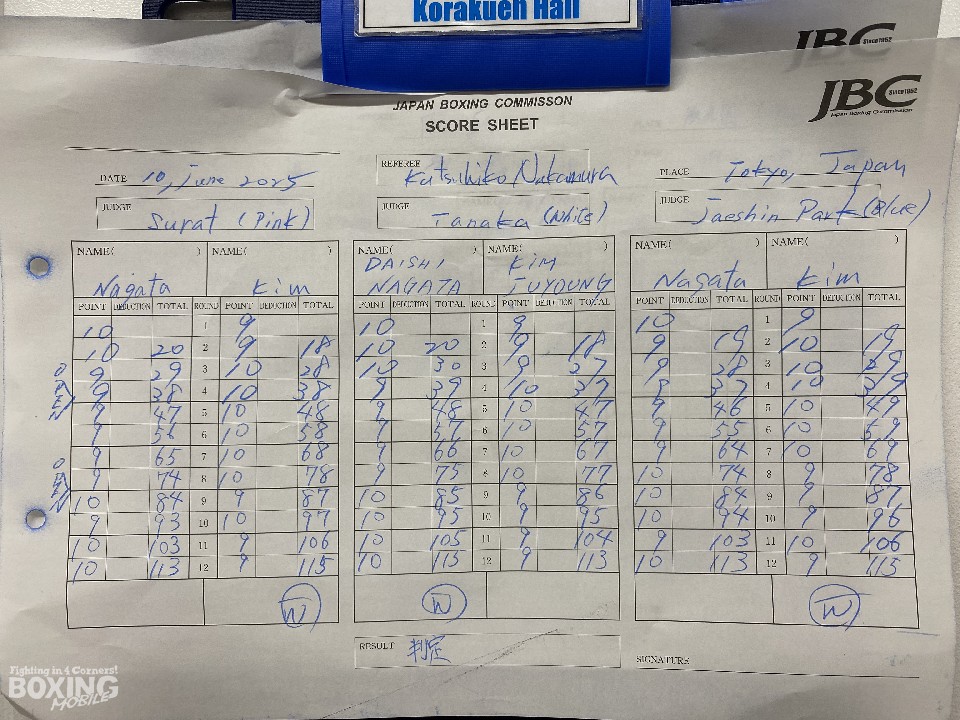 Korakuen Hall
JBC Since1952
JBC Since1952
Japan Boxing Commission
JAPAN BOXING COMMISSON
SCORE SHEET
DATE 10, June 2025
REFEREE Katsuhiko Nakamura
PLACE Tokyo, Japan
JUDGE Surat (Pink)
JUDGE Tanaka (White)
JUDGE Jaeshin Park (Blue)
NAME( ) NAME( ) NAME( ) NAME( ) NAME( ) NAME( )
Nagata Kim DAISHI NAGATA KIM JUYOUNG Nagata Kim
POINT DEDUCTION TOTAL ROUND POINT DEDUCTION TOTAL POINT DEDUCTION TOTAL ROUND POINT DEDUCTION TOTAL POINT DEDUCTION TOTAL ROUND POINT DEDUCTION TOTAL
10 1 9 10 1 9 10 1 9
10 20 2 9 18 10 20 2 9 18 9 19 2 10 19
9 29 3 10 28 10 30 3 9 27 9 28 3 10 29
OPEN 9 38 4 10 38 9 39 4 10 37 9 37 4 10 39
9 47 5 10 48 9 48 5 10 47 9 46 5 10 49
9 56 6 10 58 9 57 6 10 57 9 55 6 10 59
9 65 7 10 68 9 66 7 10 67 9 64 7 10 69
OPEN 9 74 8 10 78 9 75 8 10 77 10 74 8 9 78
10 84 9 9 87 10 85 9 9 86 10 84 9 9 87
9 93 10 10 97 10 95 10 9 95 10 94 10 9 96
10 103 11 9 106 10 105 11 9 104 9 103 11 10 106
10 113 12 9 115 10 115 12 9 113 10 113 12 9 115
W W W
RESULT 判定
SIGNATURE
Fighting in 4 Corners!
BOXING
MOBILE